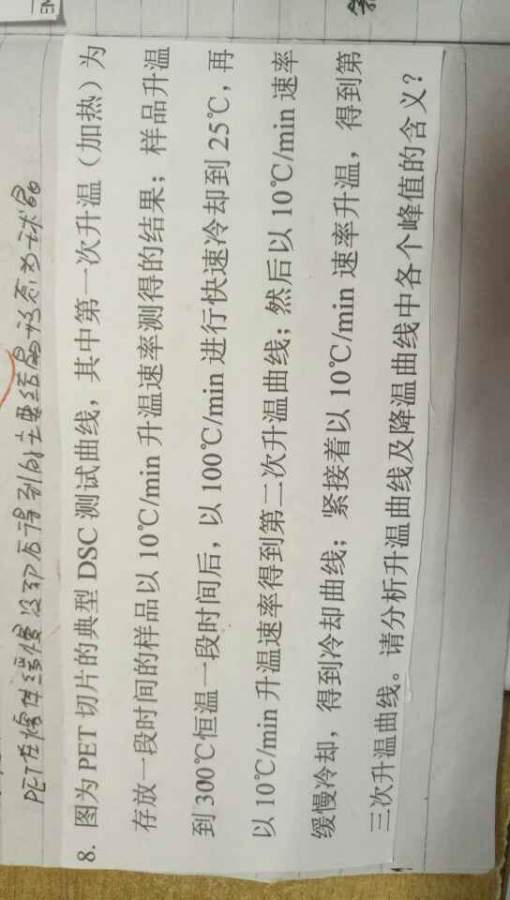 PET在熔体缓慢冷却后得到的主要结晶形态为球晶
8. 图为 PET 切片的典型 DSC 测试曲线，其中第一次升温（加热）为
存放一段时间的样品以 10℃/min 升温速率测得的结果；样品升温
到 300℃恒温一段时间后，以 100℃/min 进行快速冷却到 25℃，再
以 10℃/min 升温速率得到第二次升温曲线；然后以 10℃/min 速率
缓慢冷却，得到冷却曲线；紧接着以 10℃/min 速率升温，得到第
三次升温曲线。请分析升温曲线及降温曲线中各个峰值的含义？